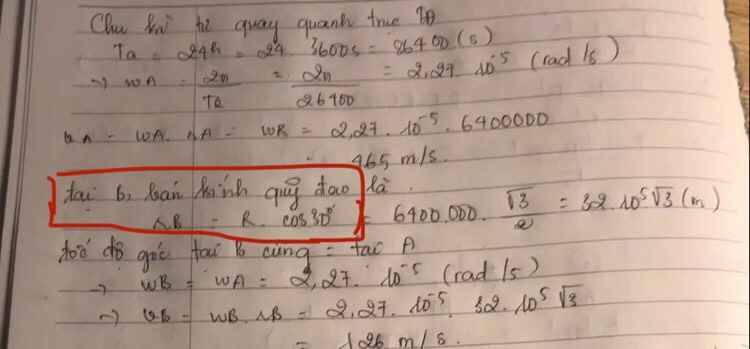 Chu kì tự quay quanh trục TĐ
Ta = 24h = 24. 3600s = 86400 (s)
→ WA = 2π/Ta = 2π/86400 = 2,27. 10⁻⁵ (rad/s)
vA = WA. rA = WB = 2,27. 10⁻⁵. 6400000
= 465 m/s.
tại B, bán kính quỹ đạo là
rB = R. cos30° = 6400.000. √3/2 = 32.10⁵√3 (m)
tốc độ góc tại B cũng = tại A
→ WB = WA = 2,27. 10⁻⁵ (rad/s)
→ vB = WB. rB = 2,27. 10⁻⁵. 32. 10⁵√3
= 126 m/s.